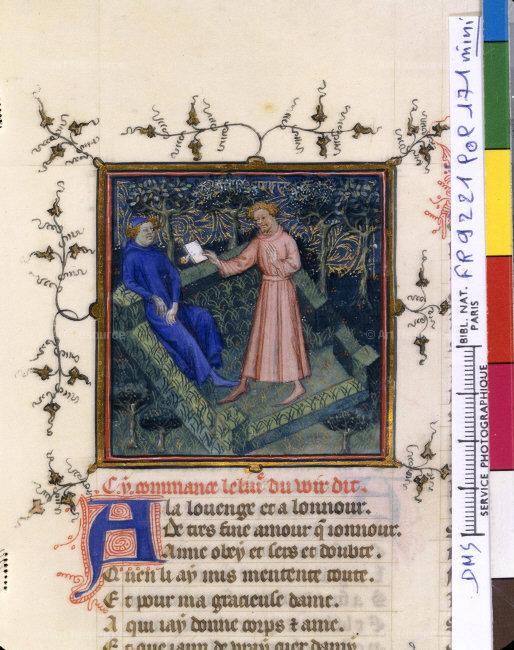 Cy commance le liu' du voir dit.
A la louenge et a lonnour.
De tres fine amour q̄ ionnour.
Aime obey et sers et doubte.
Q uen li ay mis mentente toute.
E t pour ma gracieuse dame.
A qui iay donne corps ⁊ ame.
E t que iaim de vray cuer damy
DMS
BIBL. NAT. FR 9221 Fol 171 mini
PARIS
SERVICE PHOTOGRAPHIQUE